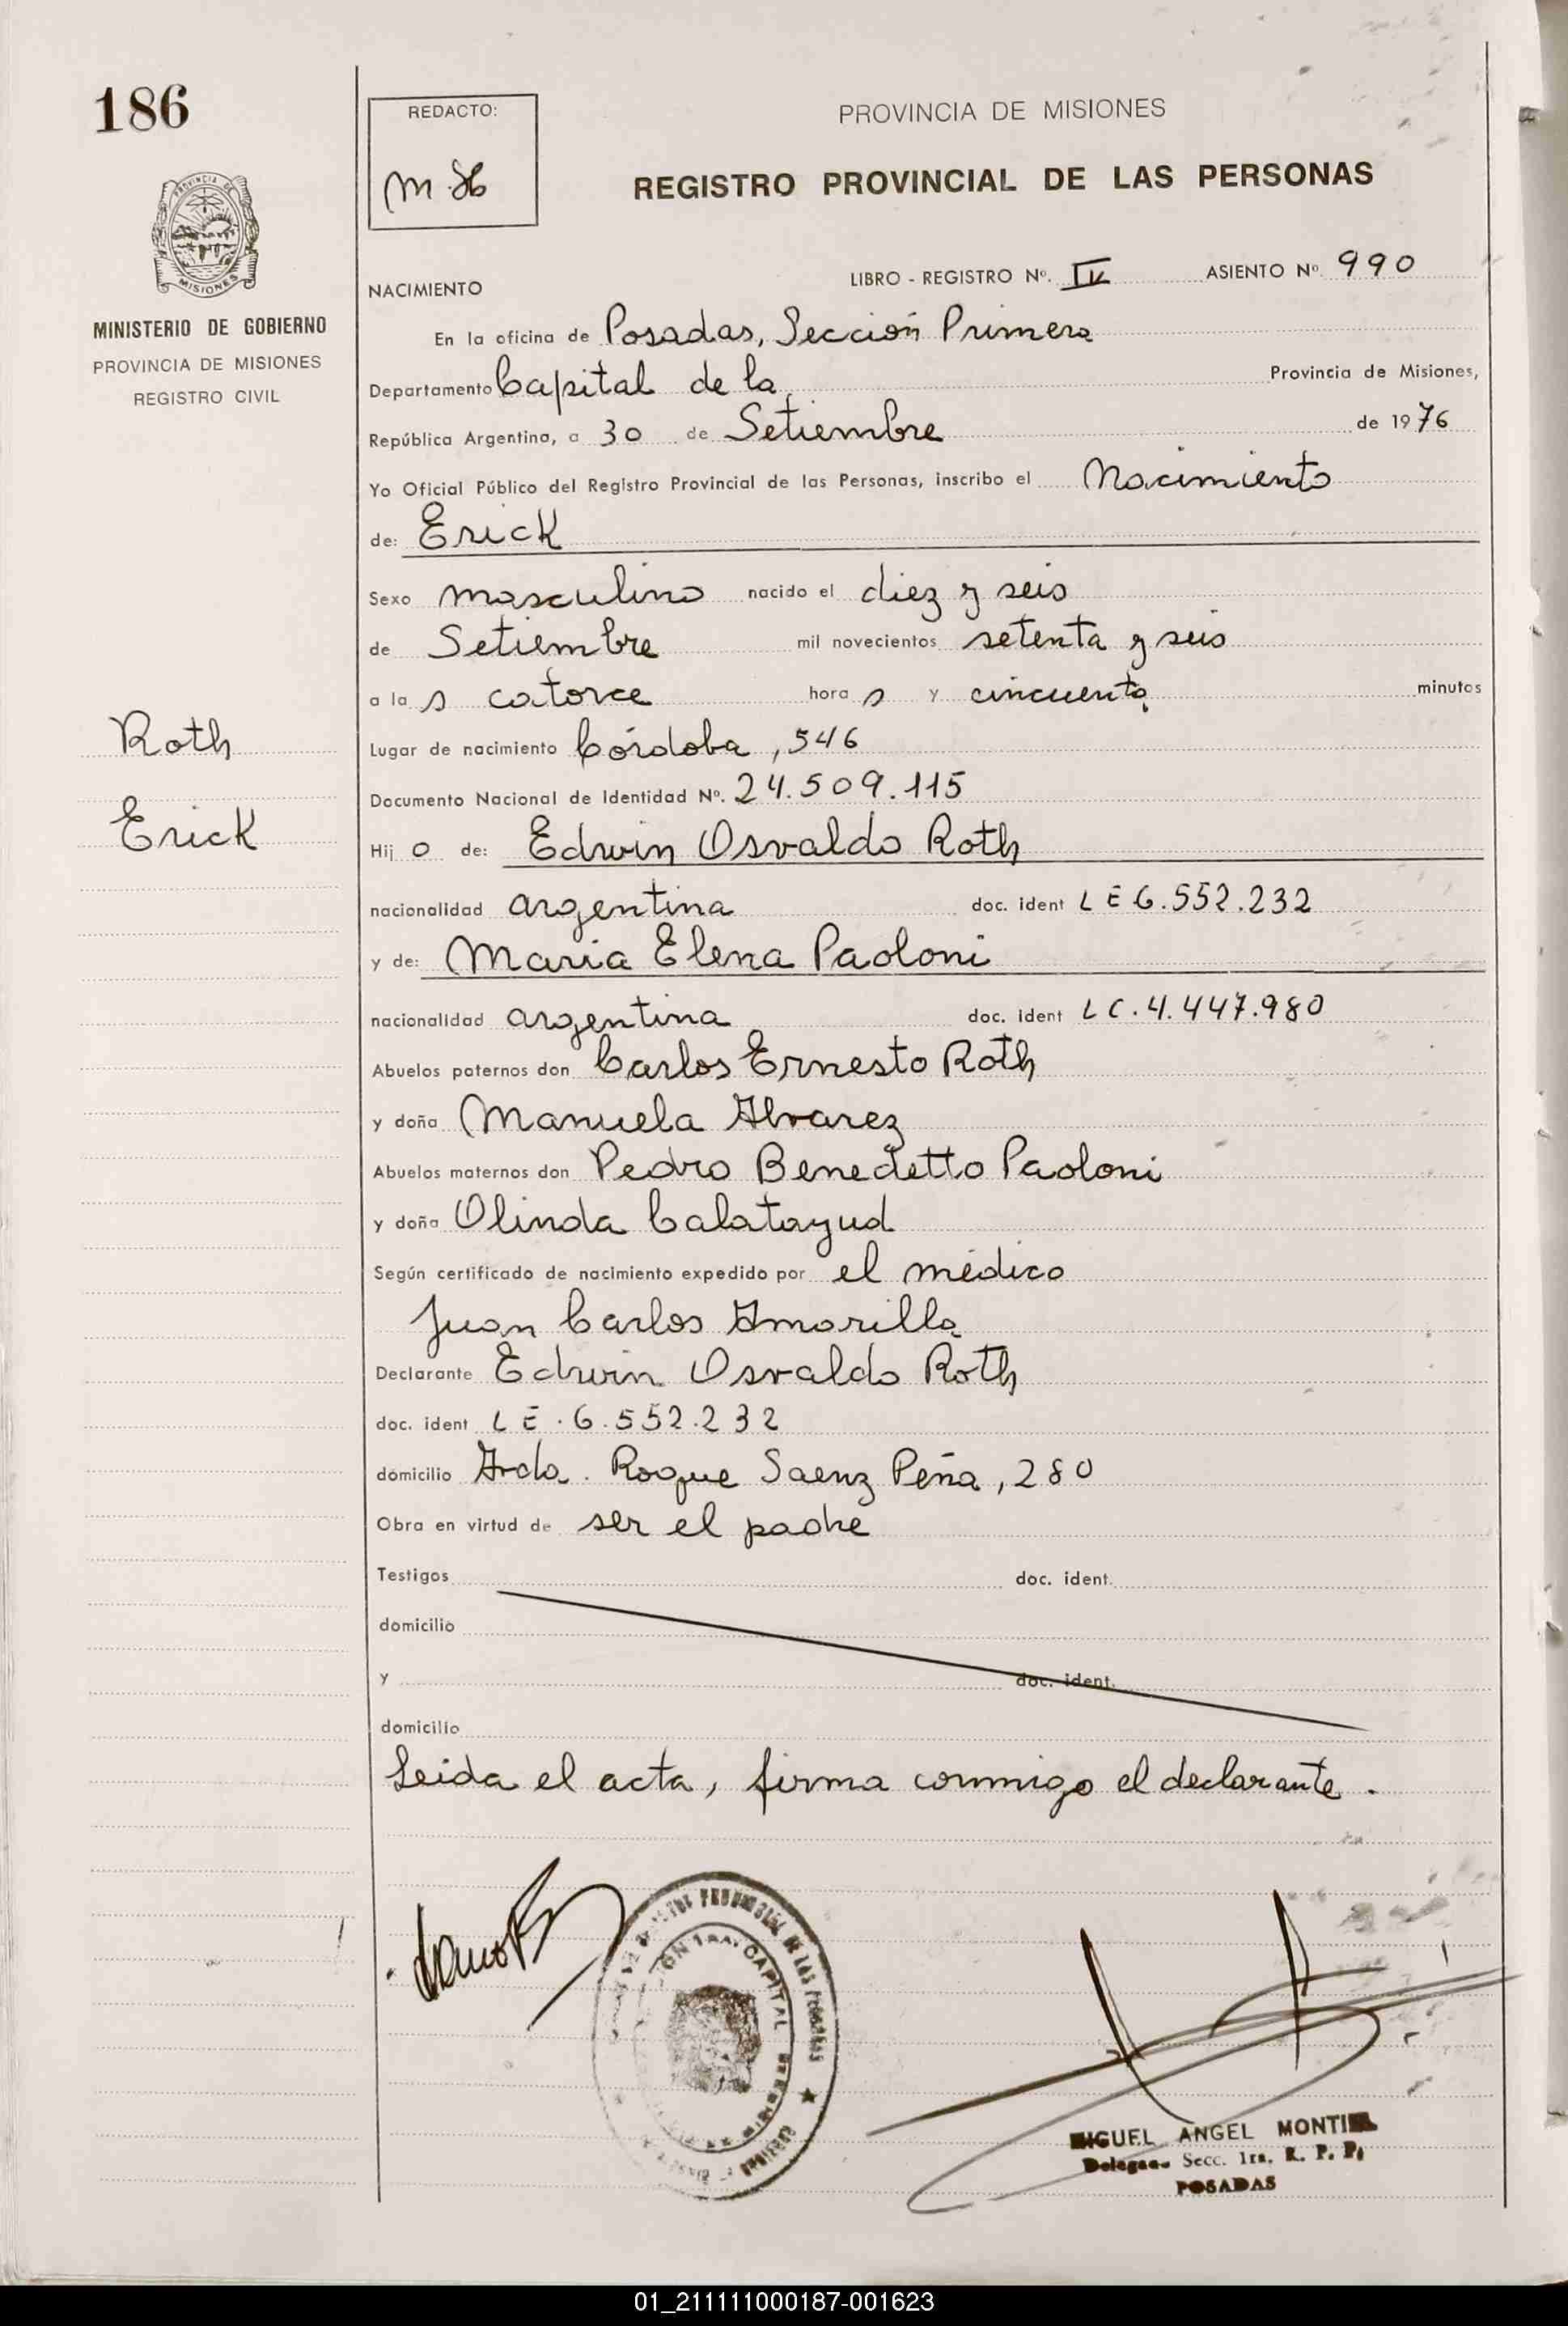 186
REDACTO:
PROVINCIA DE MISIONES
REGISTRO PROVINCIAL DE LAS PERSONAS
PROVINCIA DE
MISIONES
MINISTERIO DE GOBIERNO
PROVINCIA DE MISIONES
REGISTRO CIVIL
NACIMIENTO LIBRO - REGISTRO Nº. IV ASIENTO Nº. 990
En la oficina de Posadas, Sección Primera
Departamento Capital de la Provincia de Misiones,
República Argentina, a 30 de Setiembre de 1976
Yo Oficial Público del Registro Provincial de las Personas, inscribo el Nacimiento
de: Erick
Sexo masculino nacido el diez y seis
de Setiembre mil novecientos setenta y seis
a la s catorce hora s y cincuenta minutos
Roth
Lugar de nacimiento Córdoba, 546
Documento Nacional de Identidad Nº. 24.509.115
Erick
Hij o de: Edwin Osvaldo Roth
nacionalidad argentina doc. ident LE 6.552.232
y de: Maria Elena Paoloni
nacionalidad argentina doc. ident LC.4.447.980
Abuelos paternos don Carlos Ernesto Roth
y doña Manuela Alvarez
Abuelos maternos don Pedro Benedetto Paoloni
y doña Olinda Calatayud
Según certificado de nacimiento expedido por el médico
Juan Carlos Amarilla
Declarante Edwin Osvaldo Roth
doc. ident LE.6.552.232
domicilio Avda. Roque Saenz Peña, 280
Obra en virtud de ser el padre
Testigos doc. ident.
domicilio
y doc. ident.
domicilio
Leida el acta, firma conmigo el declarante.
CAPITAL
MIGUEL ANGEL MONTIEL
Secc. 1ra. R. P. P.
POSADAS
01_211111000187-001623